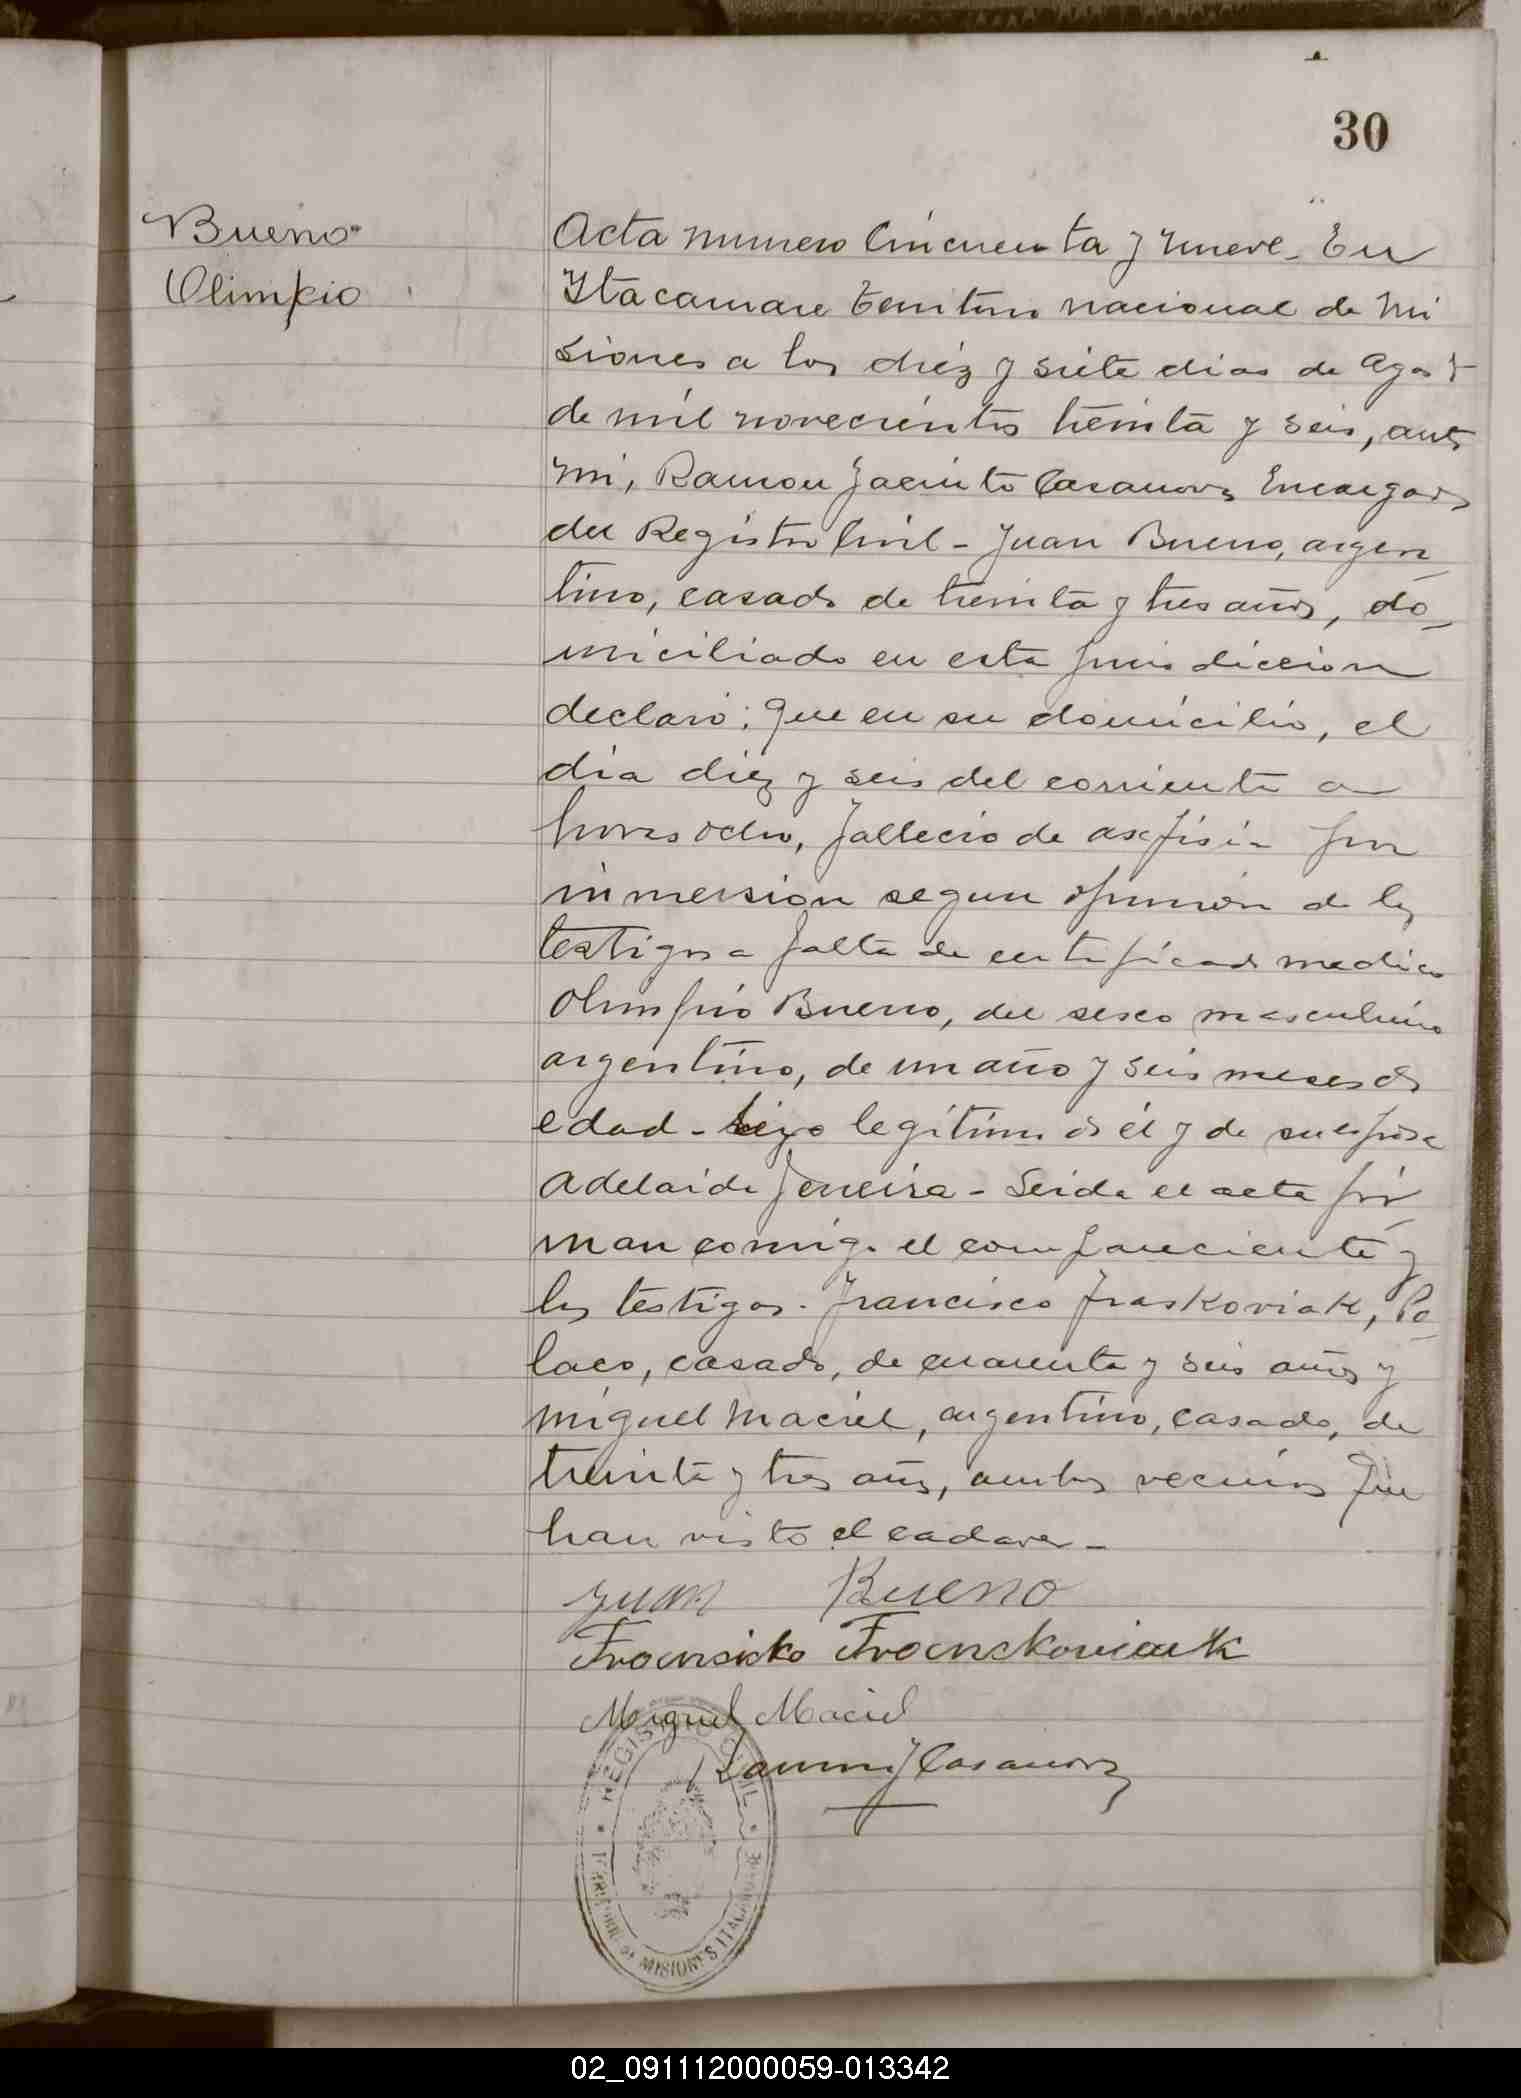 30
Bueno
Olimpio
Acta numero Cincuenta y nueve - En
Ytacaruare Territorio nacional de Mi
siones a los diéz y siete dias de Agost
de mil novecientos treinta y seis, ante
mi, Ramon Jacinto Casanova Encargado
del Registro Civil - Juan Bueno, argen
tino, casado de treinta y tres años, do_
miciliado en esta jurisdiccion
declaró: Que en su domicilio, el
dia diez y seis del corriente a
horas ocho, fallecio de asfisia por
inmersion segun opinión de los
testigos a falta de certificado medico
Olimpio Bueno, del sexo masculino
argentino, de un año y seis meses de
edad - hijo legítimo de él y de su esposa
Adelaida Jeneira - Leida el acta fir_
man conmigo el compareciente y
los testigos. Francisco Fraskoviak, Po_
laco, casado, de cuarenta y seis años y
Miguel Maciel, argentino, casado, de
treinta y tres años, ambos vecinos que
han visto el cadaver -
Juan Bueno
Fransicko Franckowiak
Miguel Maciel
Ramon J Casanova
REGISTRO CIVIL
TERRITORIO DE MISIONES ITACARUARE
02_091112000059-013342